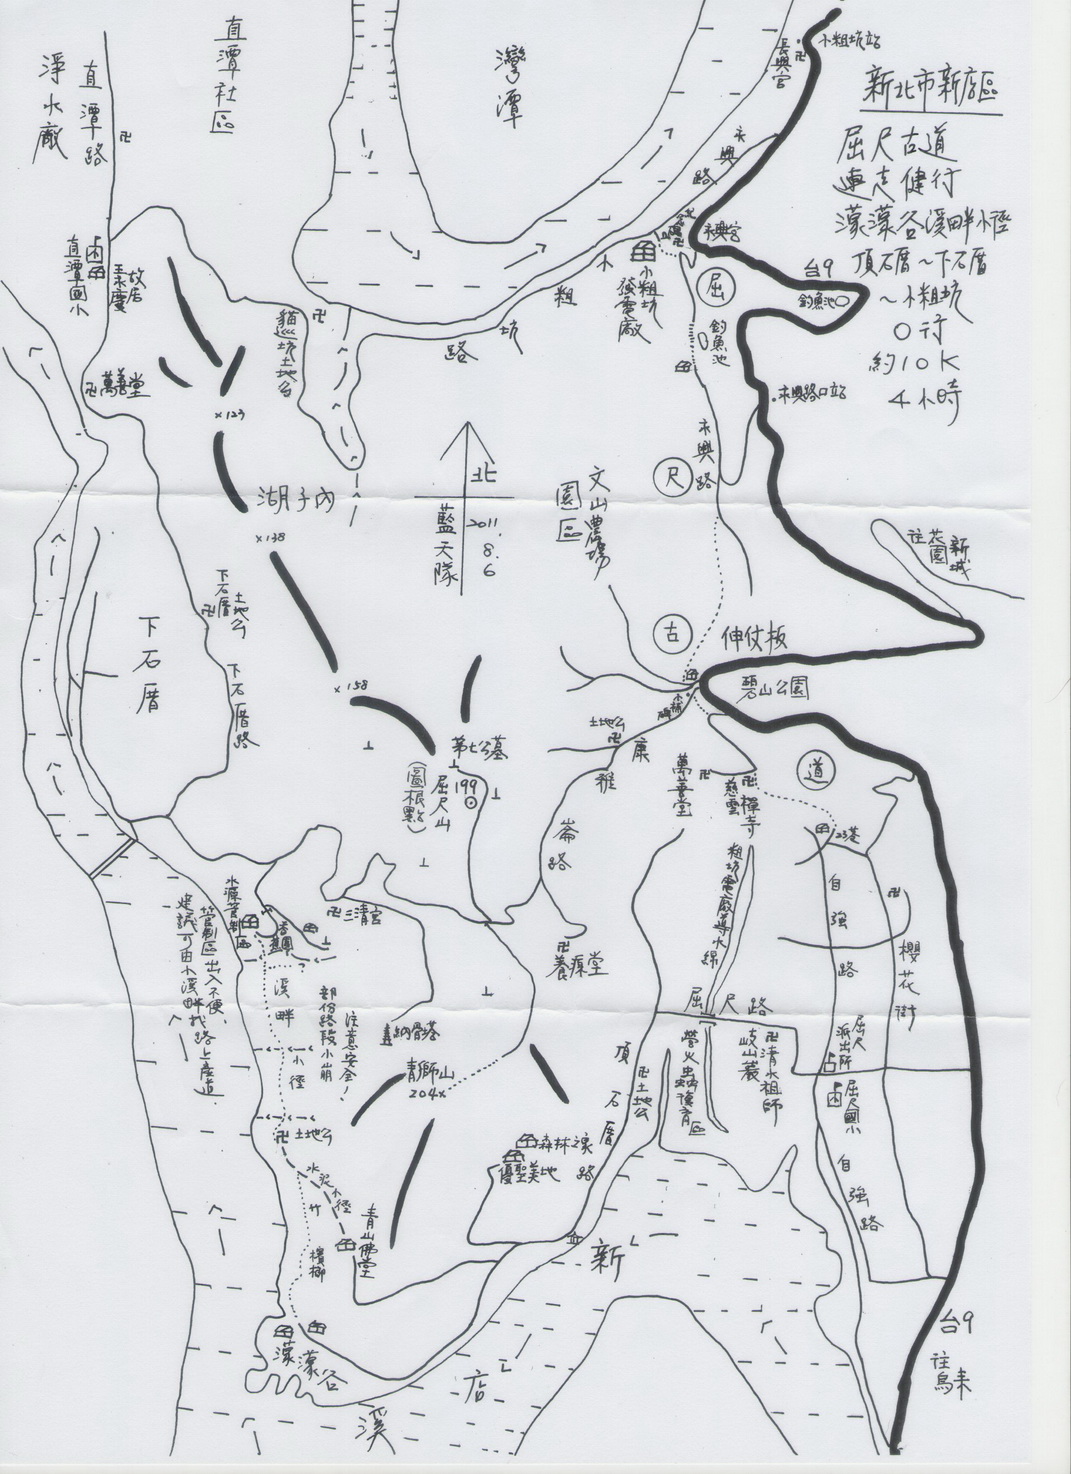 新北市新店區
屈尺古道
連走健行
濛濛谷溪畔小徑
頂石厝～下石厝
～小粗坑
O行
約10K
4小時
小粗坑站
長興宮
灣潭
直潭社區
直潭路
淨水廠
永興路
永興宮
台9
釣魚池
屈
釣魚池
小粗坑發電廠
小粗坑路
直潭國小
故居
萬善堂
貓巡坑土地公
x123
永興路口站
永興路
尺
北
藍天隊
2011.8.6
文山農場
園區
湖子內
x138
往花園新城
下石厝土地公
下石厝
下石厝路
古
伸仗板
碧山公園
x158
土地公
第七公墓
199
屈尺山
(圖根點)
雅康
萬善堂
慈雲禪寺
道
23巷
崙路
粗坑電廠導水綿
自強路
櫻花街
水源管制區
管制區出入不便，
建議可由小溪畔找路上產道
三清宮
養源堂
溪畔小徑
部份路段小崩
注意安全！
納骨塔
屈尺路
青獅山
204x
螢火蟲復育區
清水祖師
岐山巖
屈尺派出所
屈尺國小
頂石厝路
土地公
土地公
森林之家
優聖美地
水泥小徑
竹
檳榔
青山佛堂
自強路
濛濛谷
新店溪
台9
往烏來